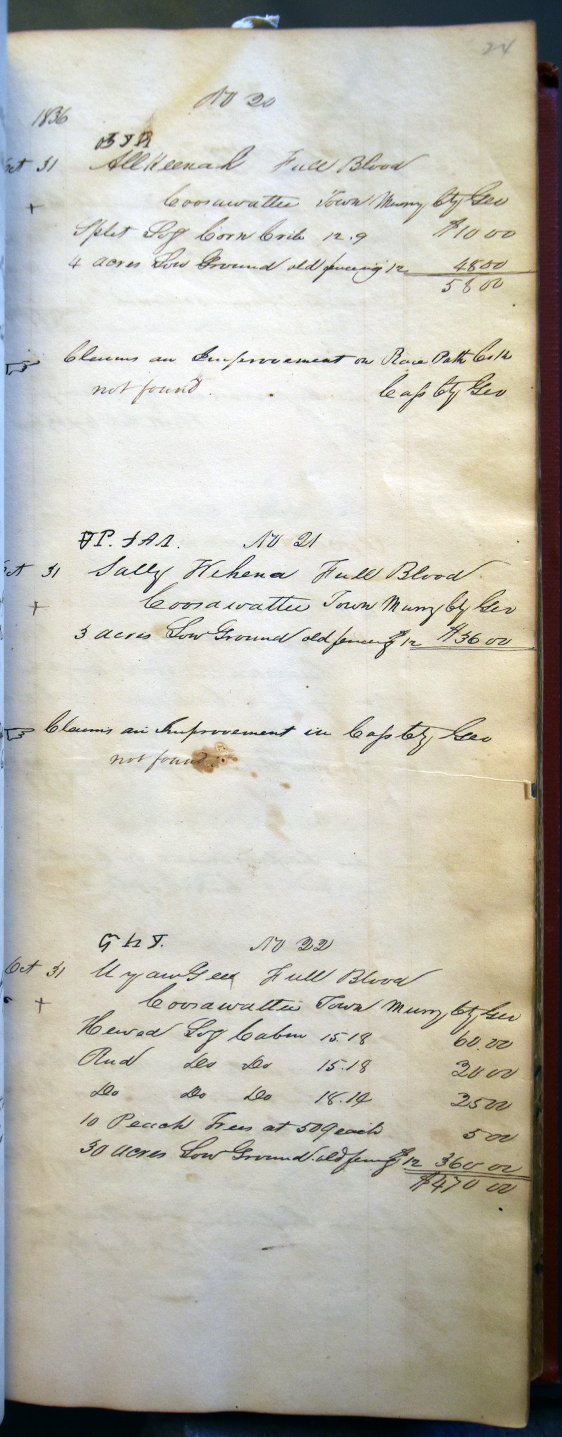 24
No 20
1836
Oct 31 AllKeenah Full Blood
+ Coosawattee Town Murry Cty Geo
Split Log Corn Crib 12.9 $10 00
4 acres Low Ground old fencing 12 48 00
58 00
☞ Claims an Improvement on Race Path
not found Cass Cty Geo
No 21
Oct 31 Sally Full Blood
+ Coosawattee Town Murry Cty Geo
3 acres Low Ground old fencing $12 $36 00
☞ Claims an Improvement in Cass Cty Geo
not found
No 22
Oct 31 Full Blood
+ Coosawattee Town Murry Cty Geo
Hewed Log Cabin 15.18 60.00
Rud Do Do 15.18 20 00
Do Do Do 18.14 25 00
10 Peach Trees at 50 each 5 00
30 acres Low Ground old fencing $12 360 00
$470 00